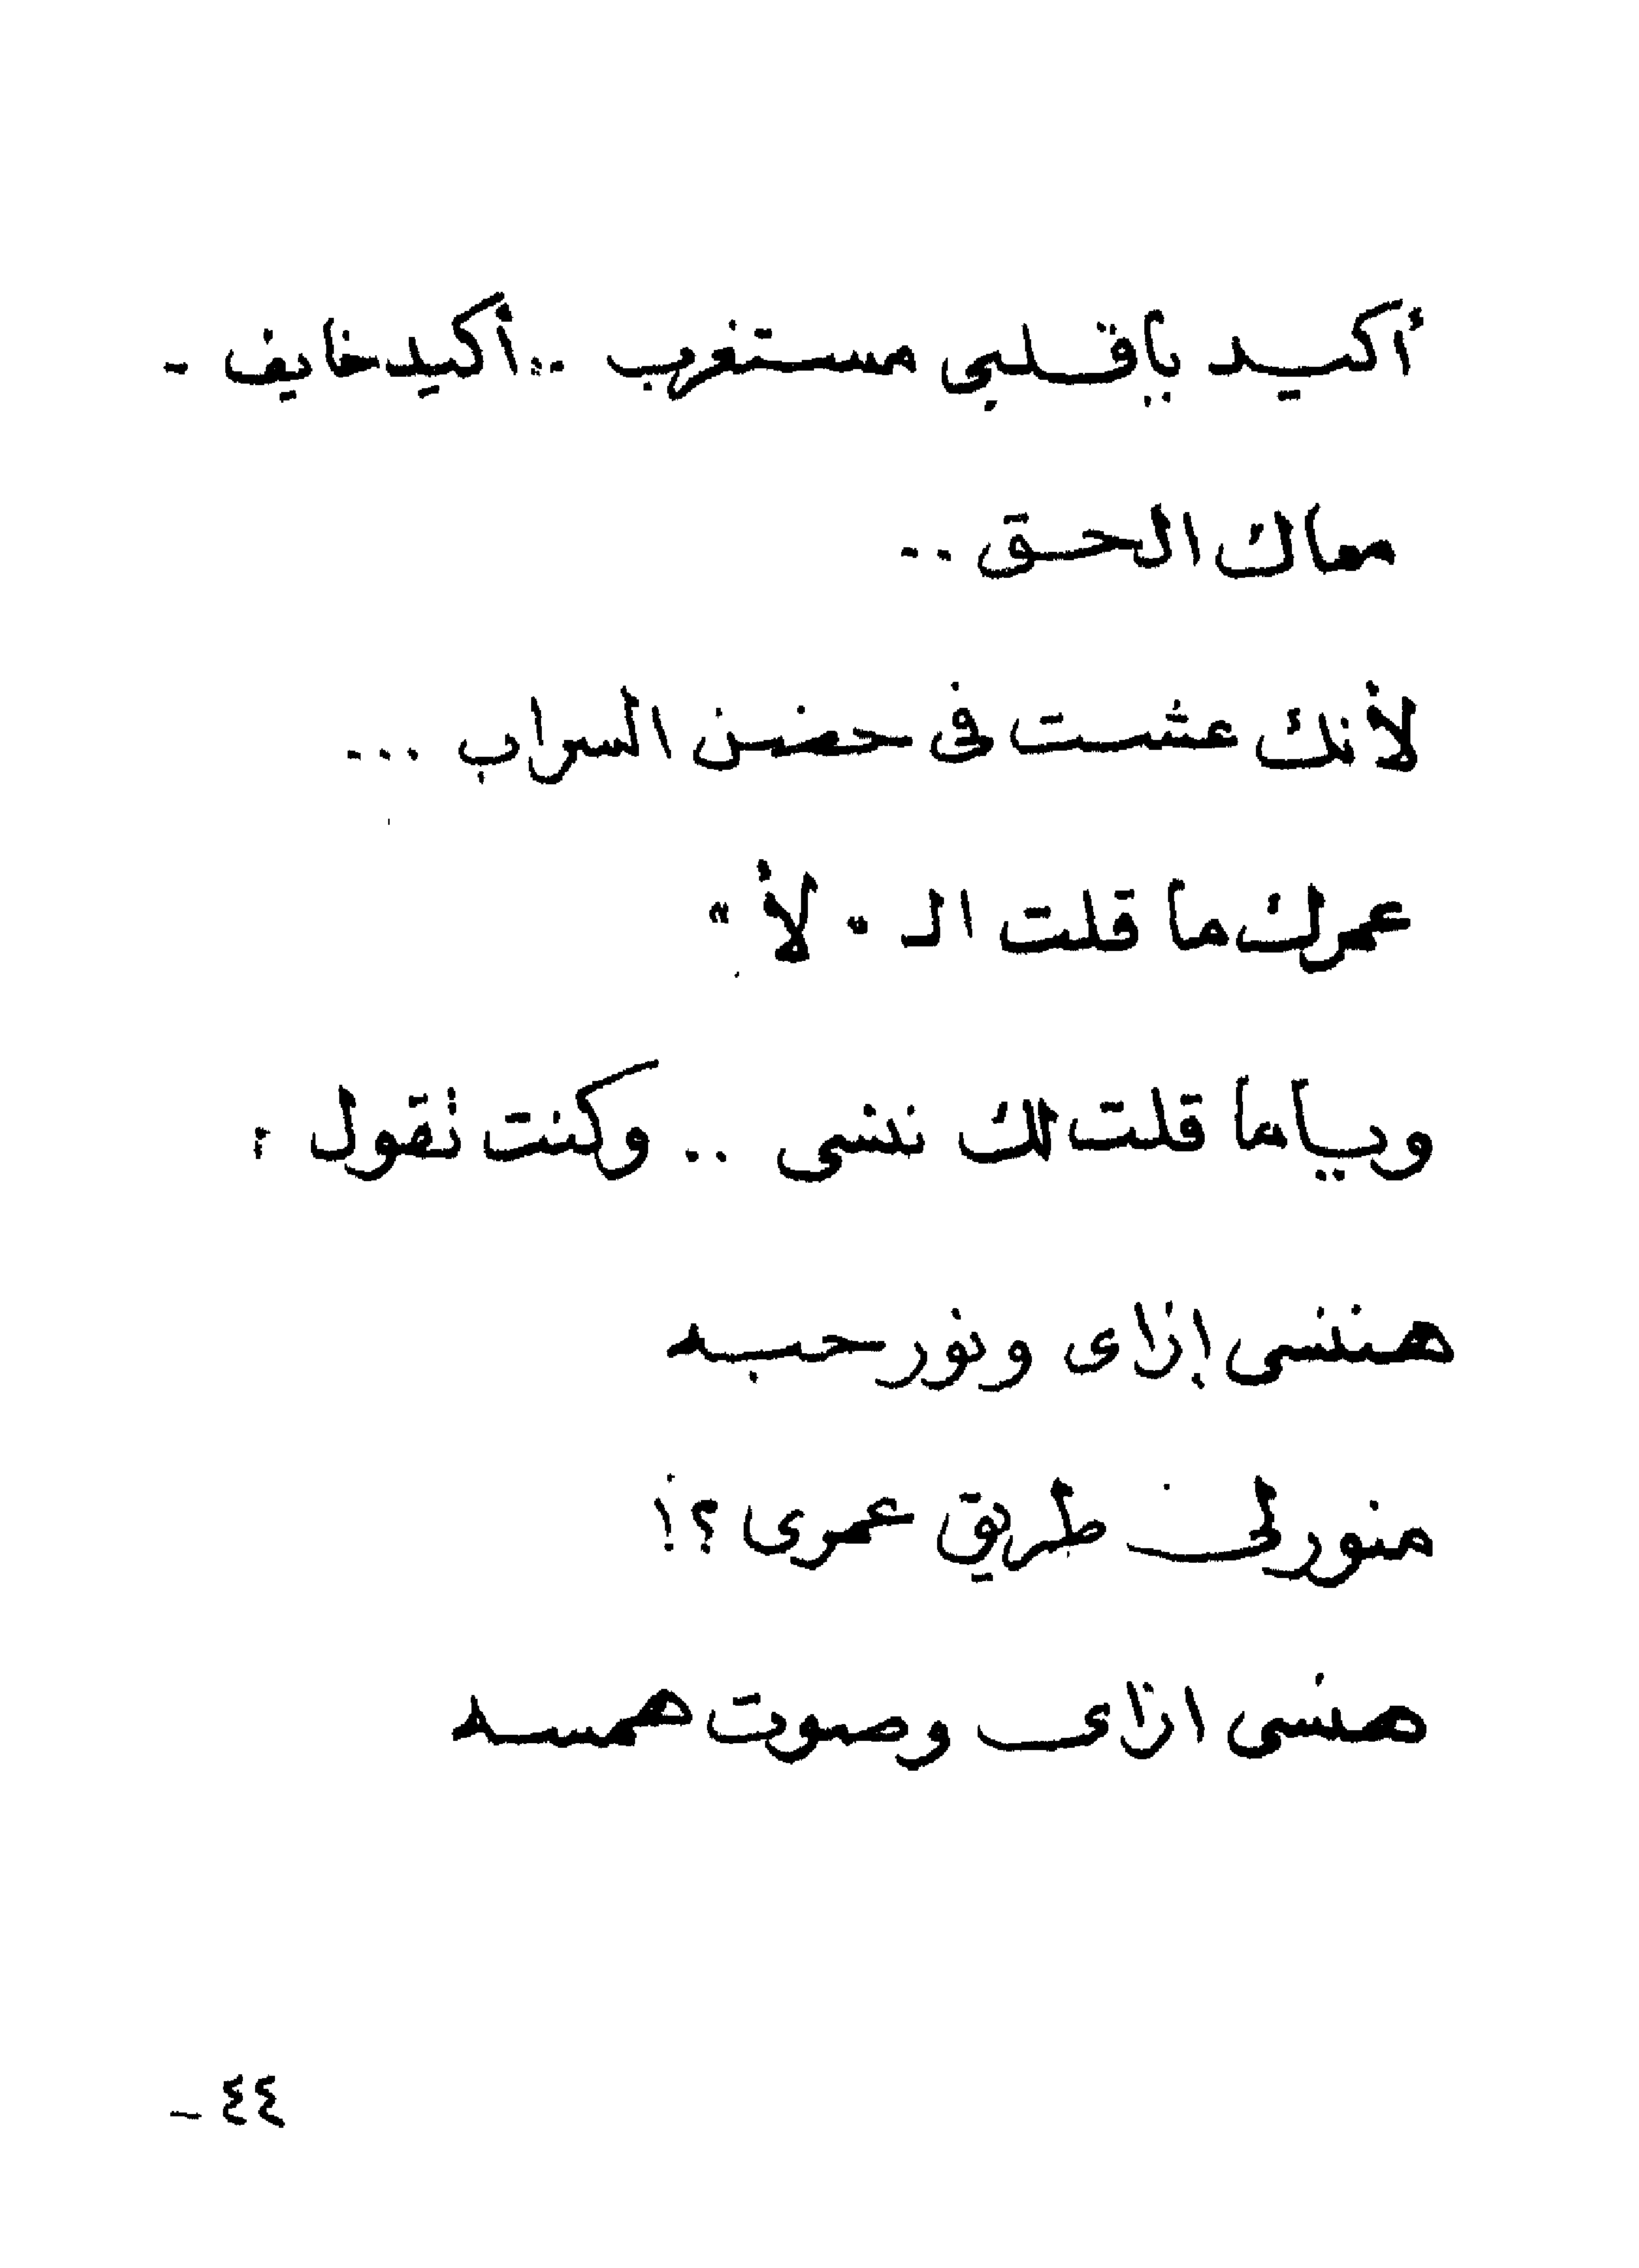 أكيد ياقلبى مستغرب .. أكيد خايف -
معاك الحق ..
لأنك عشت فى حضن السراب ...
عمرك ما قلت الـ " لأ "
وياما قلت لك ننسى .. وكنت تقول :
هننسى إزاى ونور حبه
منور لى طريق عمرى ؟!
هنسى ازاى وصوت همسه
٤٤ -